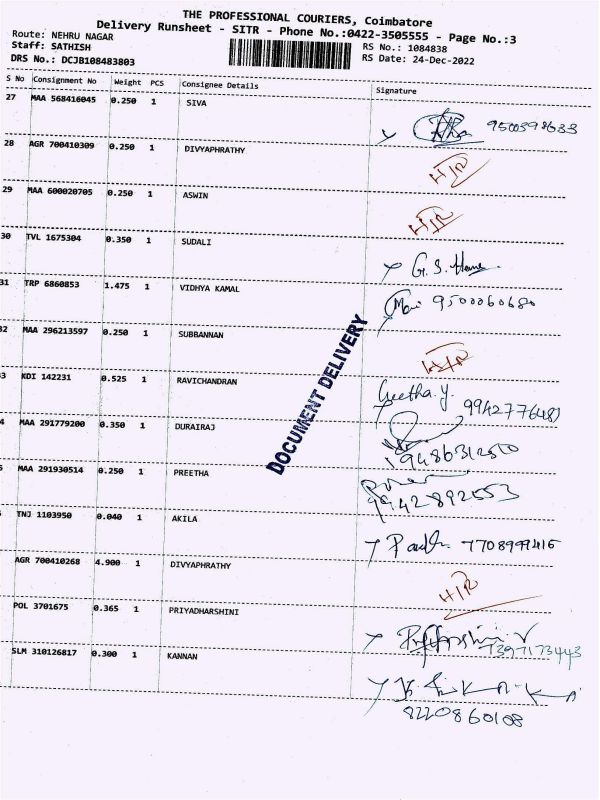 THE PROFESSIONAL COURIERS, Coimbatore
Delivery Runsheet - SITR - Phone No.:0422-3505555 - Page No.:3
Route: NEHRU NAGAR
Staff: SATHISH
DRS No.: DCJB108483803
RS No.: 1084838
RS Date: 24-Dec-2022
S No Consignment No Weight PCS Consignee Details Signature
27 MAA 568416045 0.250 1 SIVA
28 AGR 700410309 0.250 1 DIVYAPHRATHY HIR
29 MAA 600020705 0.250 1 ASWIN HIR
30 TVL 1675304 0.350 1 SUDALI G.S.
31 TRP 6860853 1.475 1 VIDHYA KAMAL 9500060680
32 MAA 296213597 0.250 1 SUBBANNAN HIR
DOCUMENT DELIVERY
3 KDI 142231 0.525 1 RAVICHANDRAN Geetha.y.
4 MAA 291779200 0.350 1 DURAIRAJ
MAA 291930514 0.250 1 PREETHA
9942892553
TNJ 1103950 0.040 1 AKILA
AGR 700410268 4.900 1 DIVYAPHRATHY HIR
POL 3701675 0.365 1 PRIYADHARSHINI
7397173443
SLM 310126817 0.300 1 KANNAN
8220860108